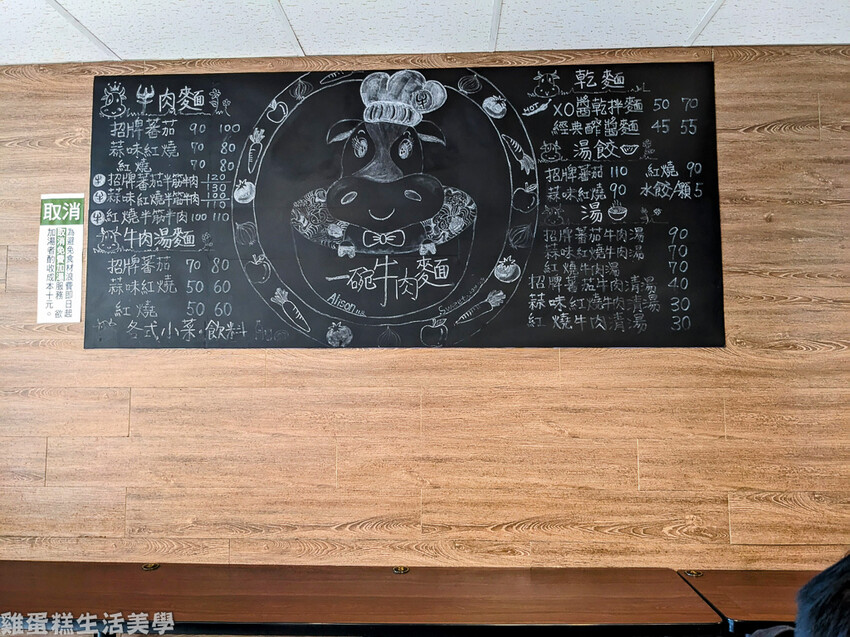 牛肉麵
招牌蕃茄 90 100
蒜味紅燒 70 80
紅燒 70 80
牛 招牌蕃茄半筋半肉 120 130
牛 蒜味紅燒半筋半肉 100
牛 紅燒半筋半肉 100 110
牛肉湯麵
招牌蕃茄 70 80
蒜味紅燒 50 60
紅燒 50 60
各式小菜·飲料
一碗牛肉麵
Alison
乾麵
XO醬乾拌麵 50 70
經典酢醬麵 45 55
湯餃
招牌蕃茄 110 紅燒 90
蒜味紅燒 90 水餃/顆 5
湯
招牌蕃茄牛肉湯 90
蒜味紅燒牛肉湯 70
紅燒牛肉湯 70
招牌蕃茄牛肉清湯 40
蒜味紅燒牛肉清湯 30
紅燒牛肉清湯 30
取消
為避免食材浪費即日起
取消免費加湯服務 欲
加湯者酌收成本十元。
雞蛋糕生活美學